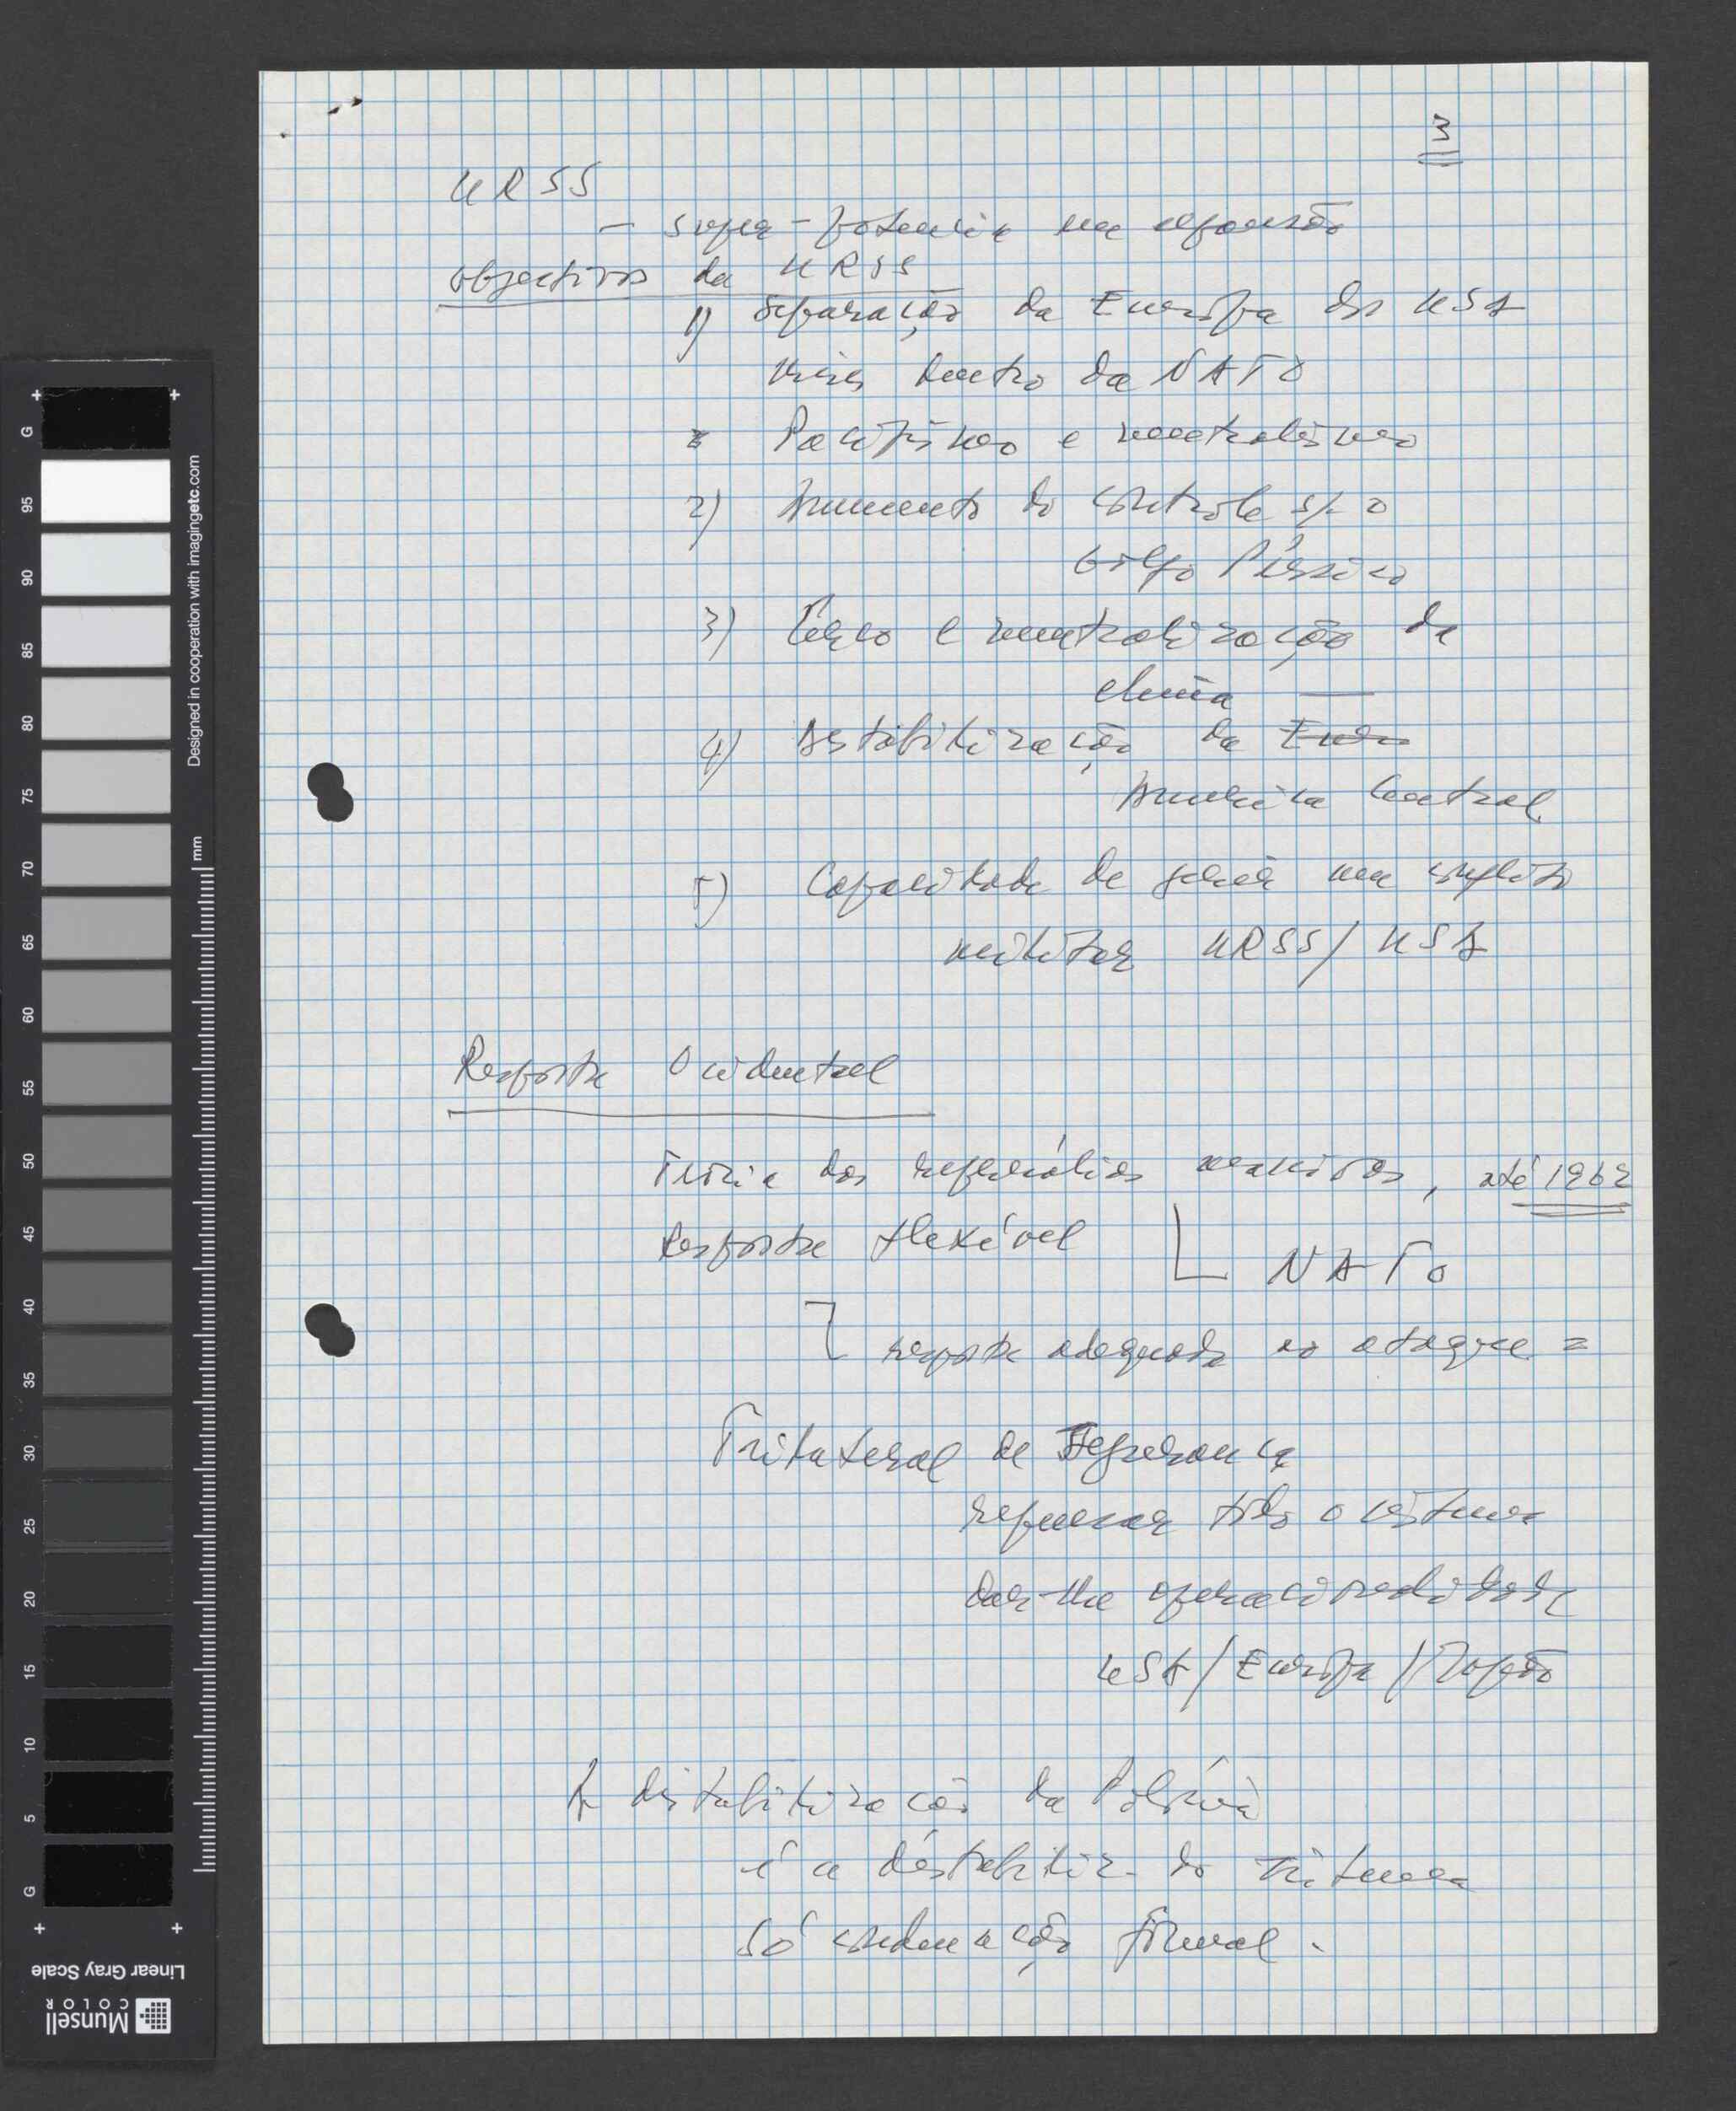 3
URSS
- super-potencia em expansão
objectivos da URSS
1) Separação da Europa dos USA
crises dentro da NATO
Pacifismo e neutralismo
2) Aumento do controle s/ o
Golfo Pérsico
3) Cerco e neutralização da
China —
4) Destabilização da Euro
America Central
5) Capacidade de gerir um conflito
militar URSS/USA
Resposta Ocidental
Teoria das represálias massivas, até 1962
Resposta flexível
NATO
resposta adequada ao ataque =
Trilateral de Segurança
repensar todo o sistema
dar-lhe operacionalidade
USA/Europa/Japão
A destabilização da Polónia
é a destabiliz. do sistema
Só condenação formal.
G 95 90 85 80 75 70 65 60 55 50 45 40 35 30 25 20 15 10 5 G
mm
Designed in cooperation with imagingetc.com
Linear Gray Scale
Munsell
COLOR